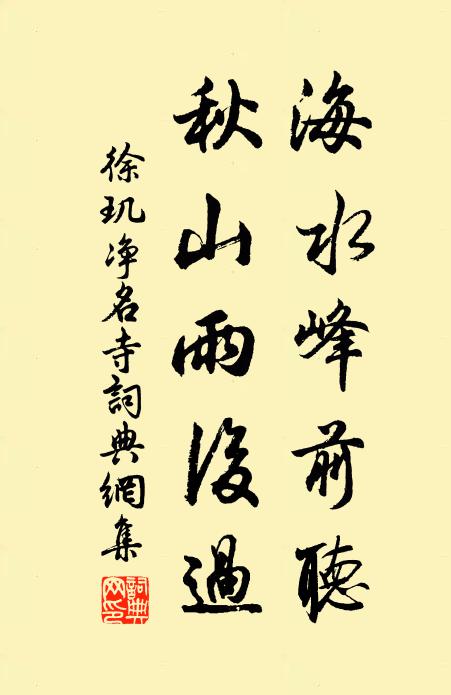 海水峰前聽
秋山雨後過
徐玑净名寺詞典網集
詞典網印